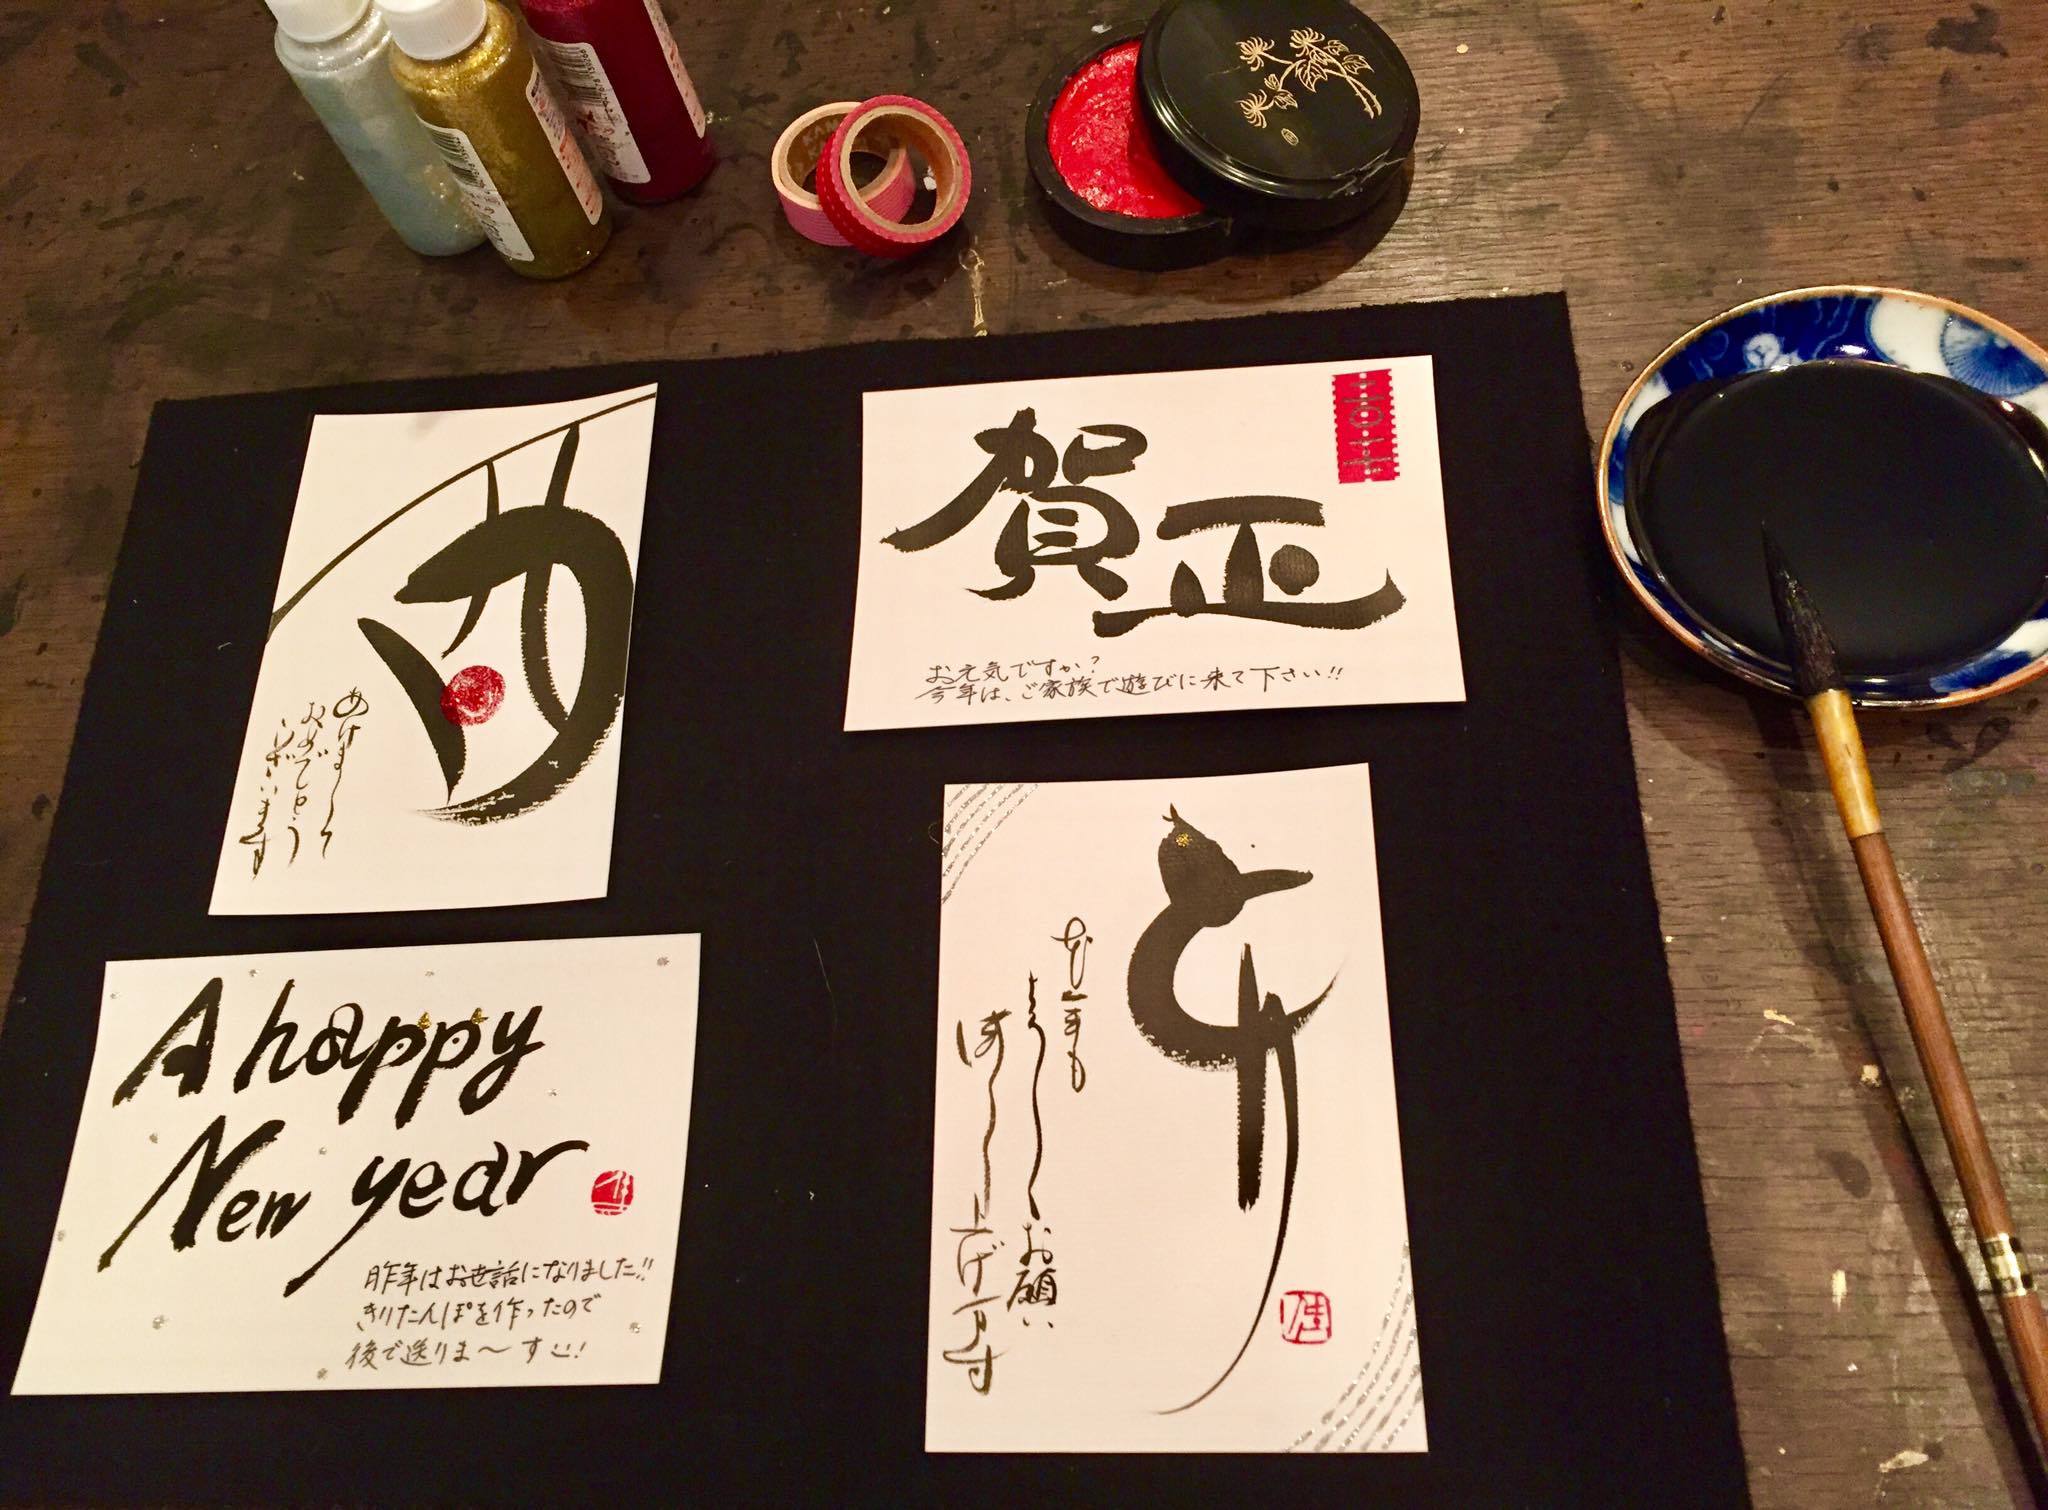 酉
あけまして
おめでとう
ございます
賀正
お元気ですか?
今年は、ご家族で遊びに来て下さい!!
A happy
New year
昨年はお世話になりました!!
きりたんぽを作ったので
後で送りま〜す!
お願い
申し上げます